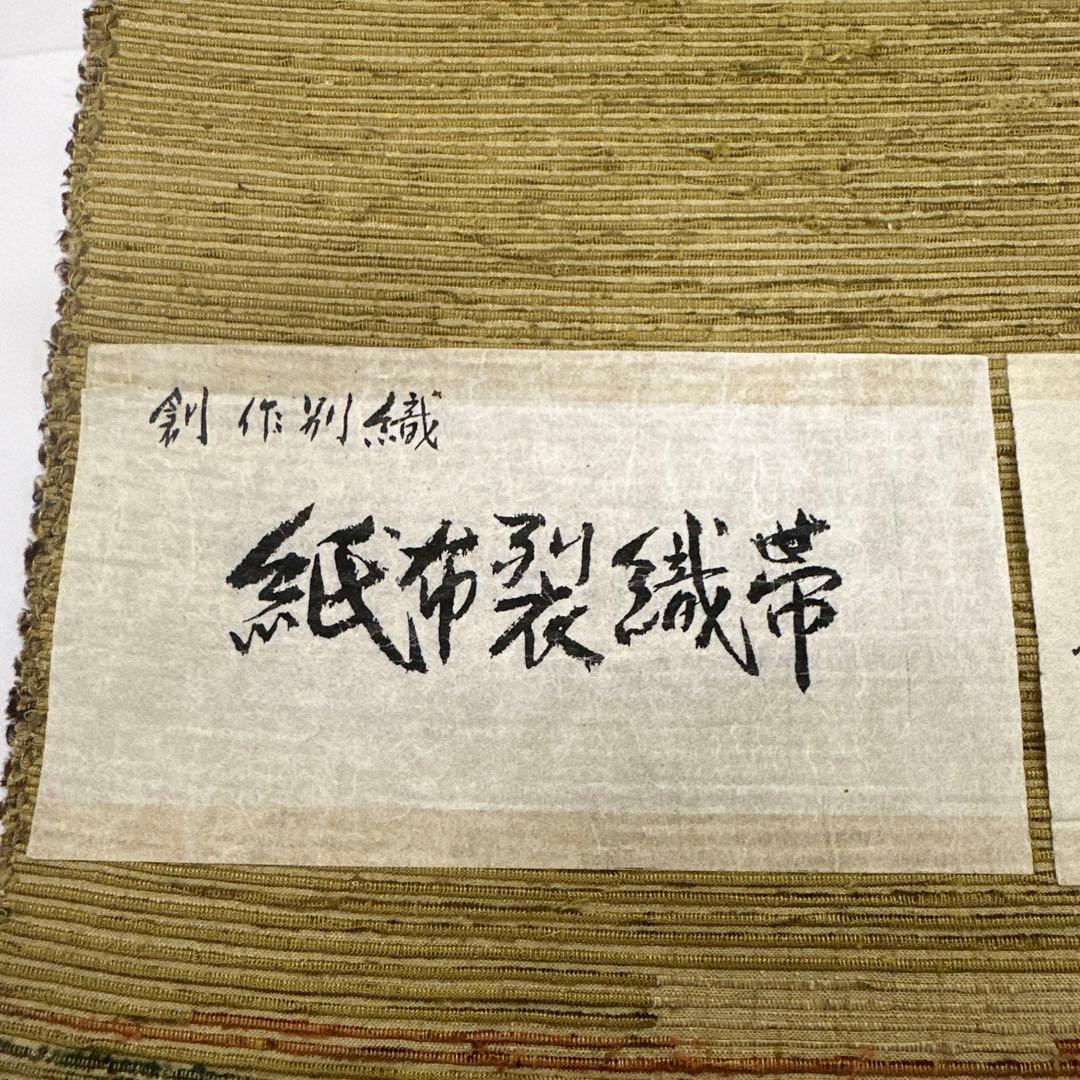 創作別織
紙布裂織帯